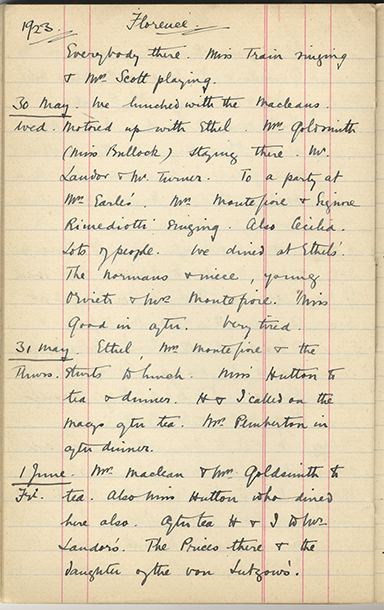 1923. Florence.
Everybody there. Miss Train singing
& Mrs Scott playing.
30 May. We lunched with the Macleans.
Wed. Motored up with Ethel. Mrs Goldsmith
(Miss Bullock) staying there. Mr
Landor & Mr Turner. To a party at
Mrs Earle's. Mrs Montefiore & Signore
Rimediotti singing. Also Cecilia.
Lots of people. We dined at Ethel's.
The Normans & niece, young
Orvieto & Mrs Montefiore. Miss
Good in after. Very tired.
31 May. Ethel, Mrs Montefiore & the
Thurs. Sturts to lunch. Miss Hutton to
tea & dinner. H & I called on the
Macys after tea. Mrs Pemberton in
after dinner.
1 June. Mrs Maclean & Mrs Goldsmith to
Fri. tea. Also Miss Hutton who dined
here also. After tea H & I to Mr
Landor's. The Prices there & the
daughter of the von Lutzows'.